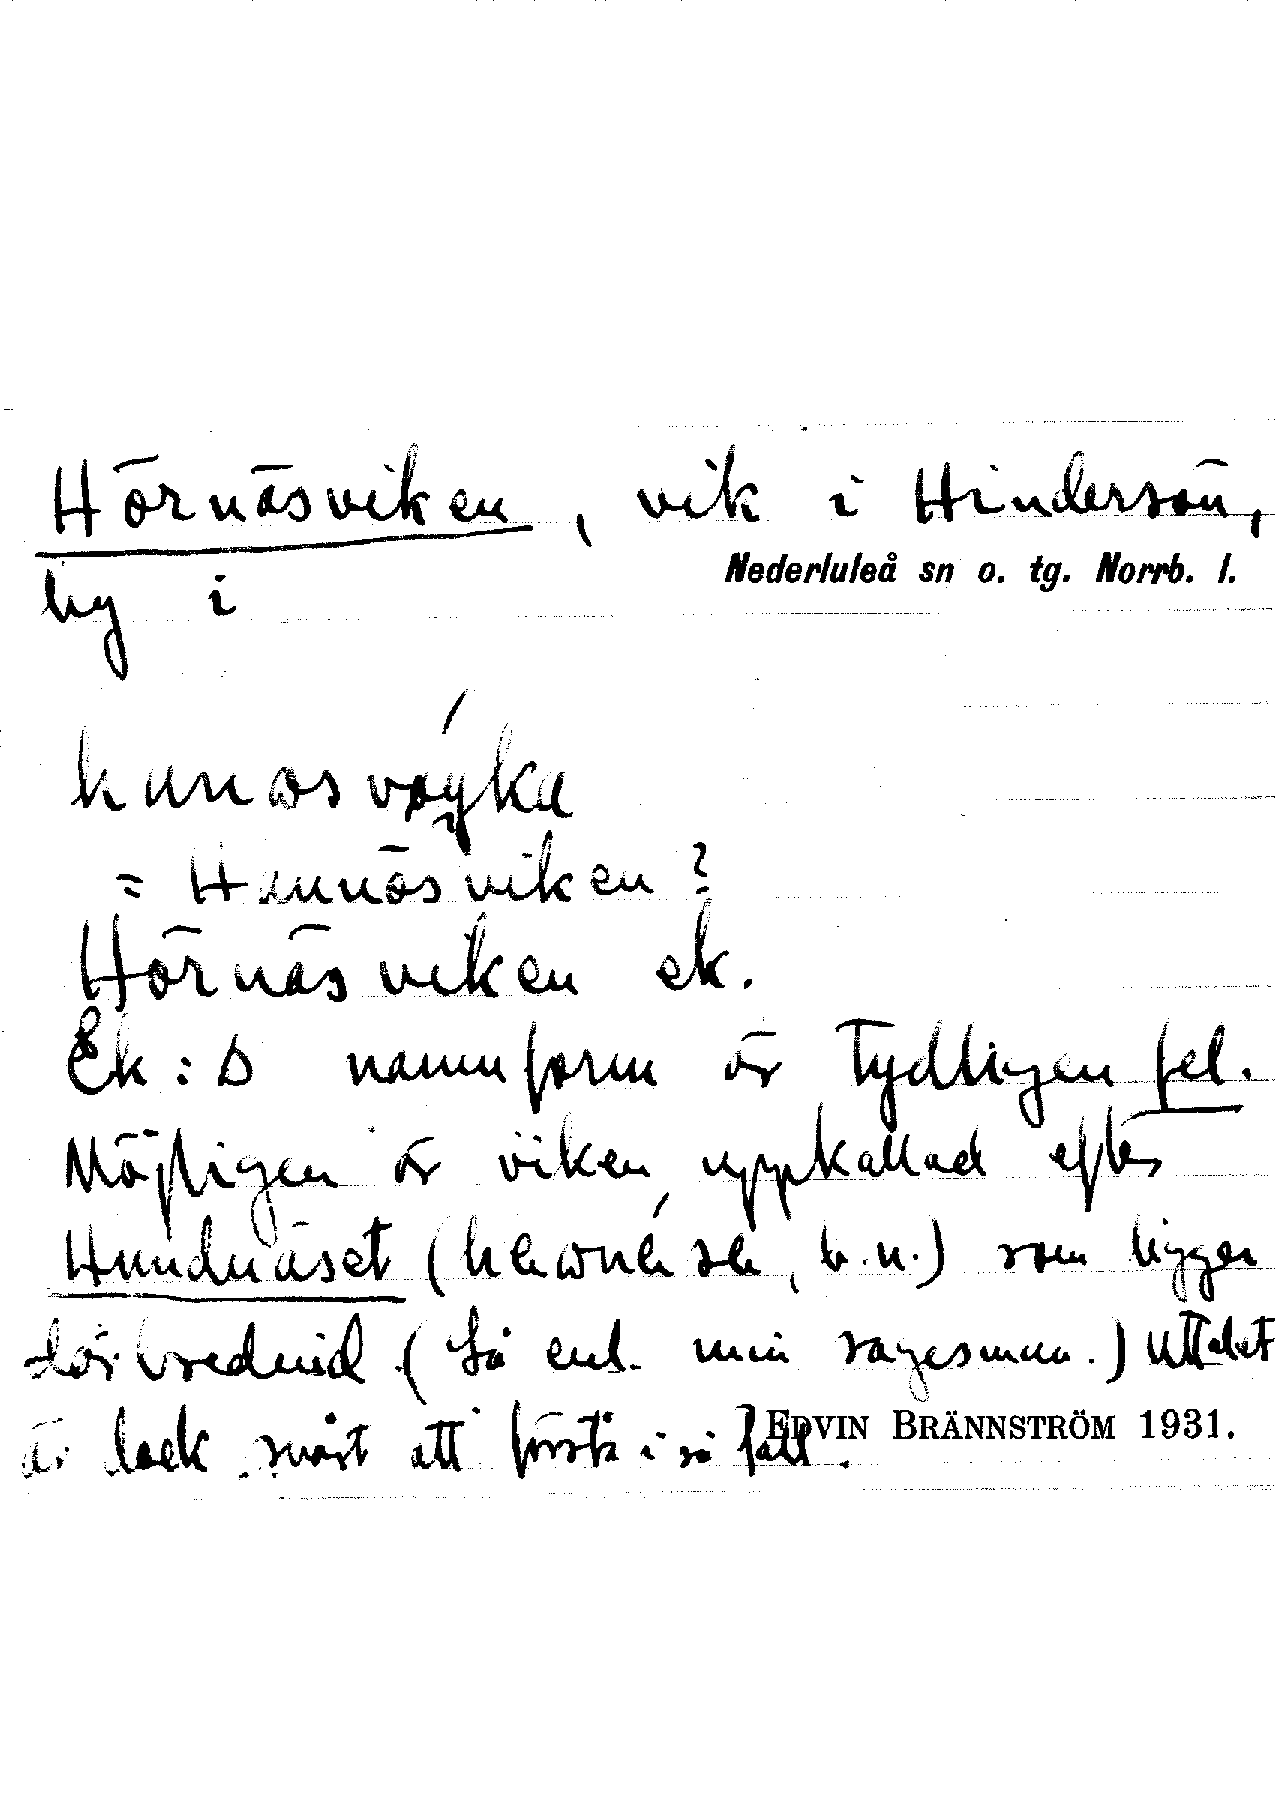 Hörnäsviken, vik i Hindersön,
Nederluleå sn o. tg. Norrb. l.
by i
= Hunnäsviken?
Hörnäsviken ek.
Ek:s namnform är tydligen fel.
Möjligen är viken uppkallad efter
Hundnäset ( b.n.) som ligger
där bredvid (Så enl. min sagesman.) Uttalet
är dock svårt att förstå i så fall.
EDVIN BRÄNNSTRÖM 1931.